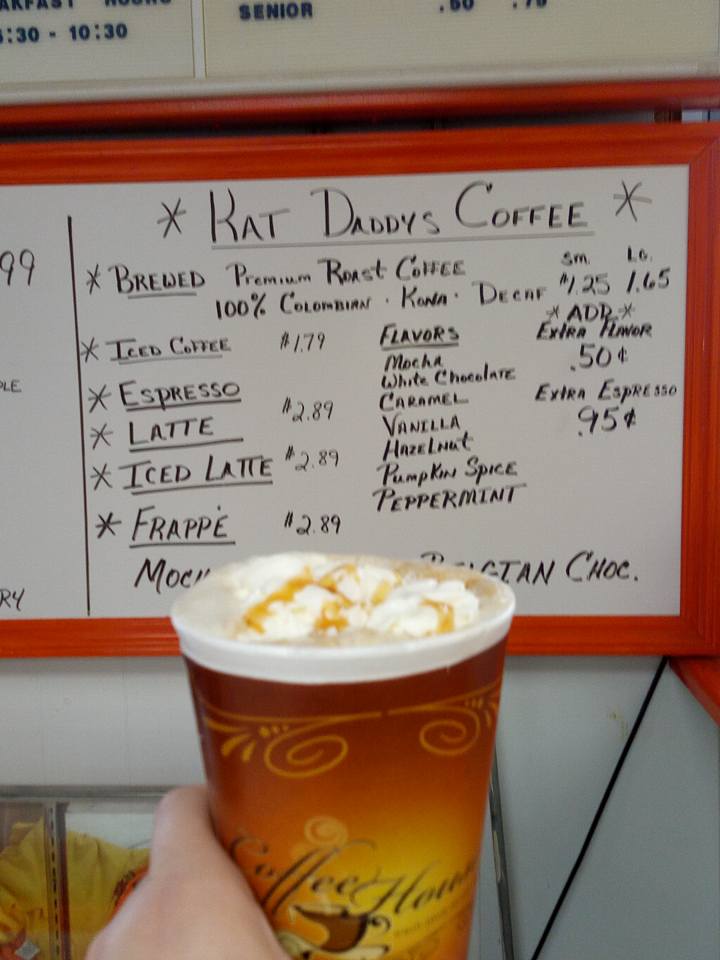 HOURS
:30 - 10:30
SENIOR .60 .75
99
* KAT DADDYS COFFEE *
Sm. LG.
* BREWED Premium Roast Coffee $1.25 1.65
100% COLOMBIAN · KONA · DECAF
* ADD *
* ICED COFFEE $1.79
FLAVORS
EXTRA FLAVOR
.50¢
Mocha
White Chocolate
CARAMEL
VANILLA
HAZELNUT
Pumpkin Spice
PEPPERMINT
EXTRA ESPRESSO
.95¢
* ESPRESSO
* LATTE $2.89
* ICED LATTE $2.89
* FRAPPÉ $2.89
CHOC.
Coffee House